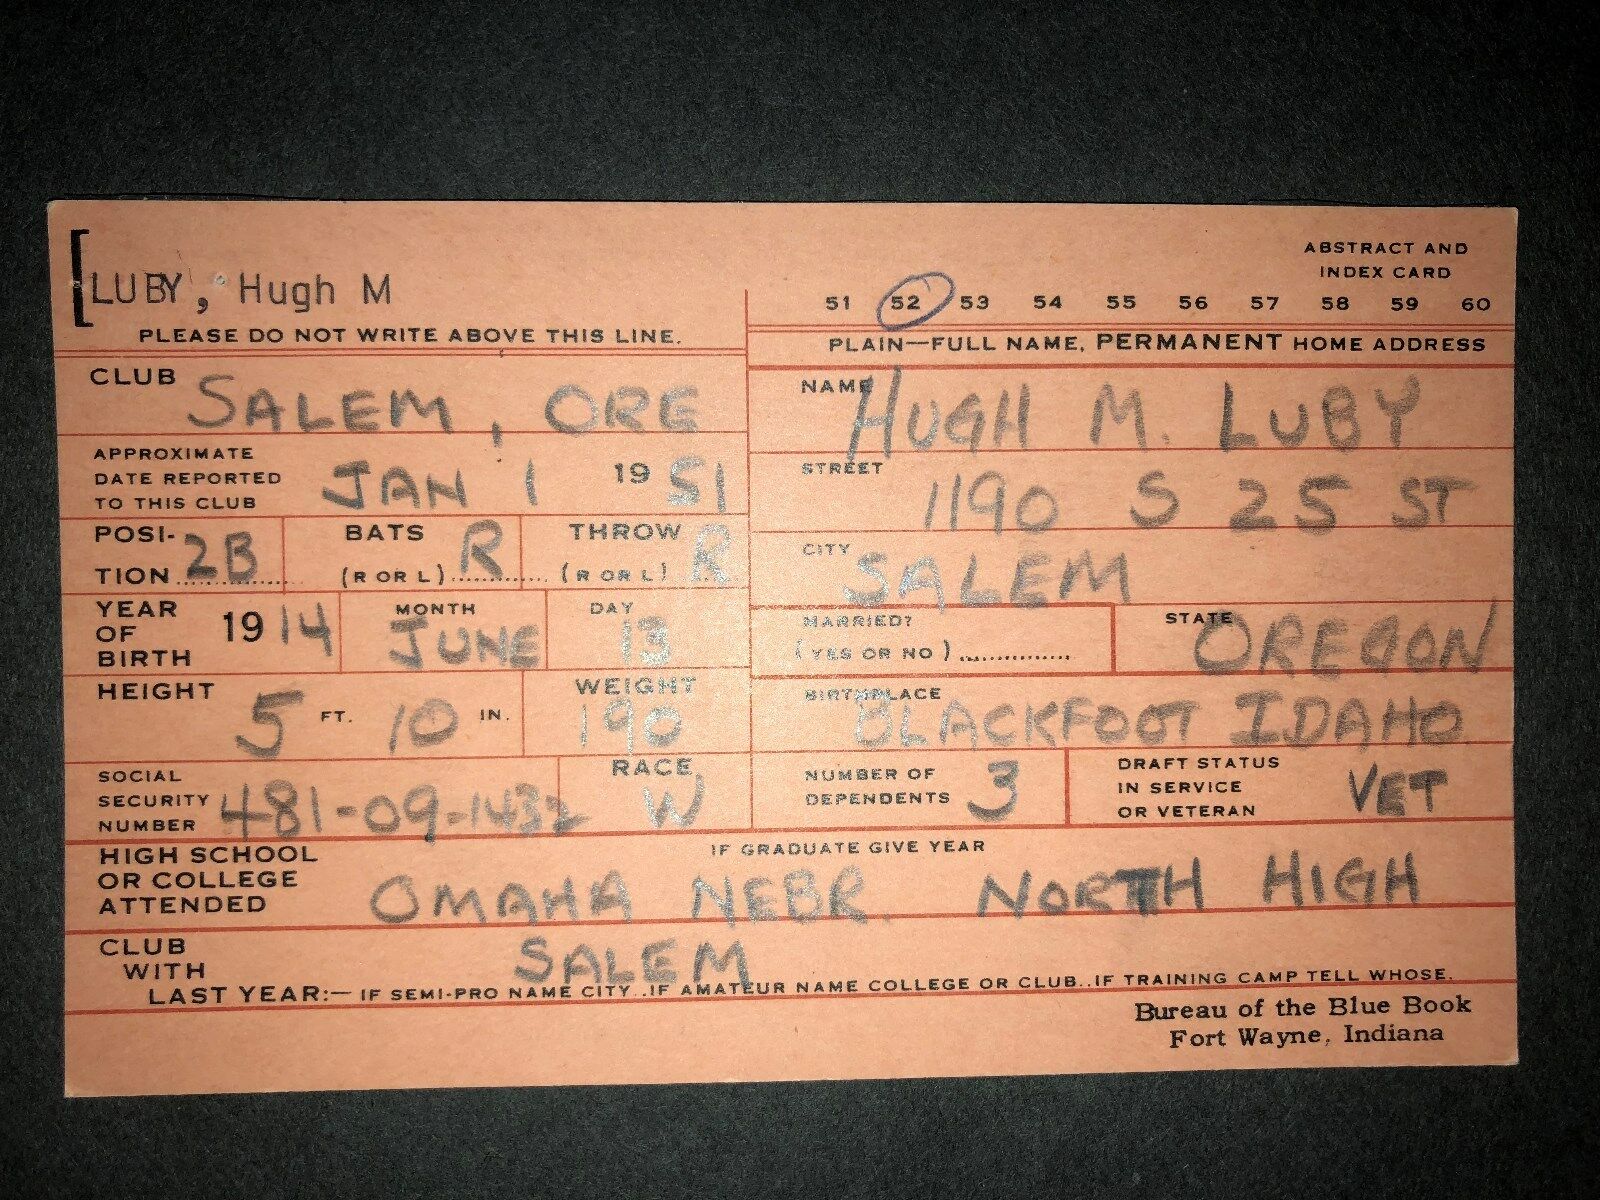 LUBY, Hugh M
PLEASE DO NOT WRITE ABOVE THIS LINE.
ABSTRACT AND
INDEX CARD
51 52 53 54 55 56 57 58 59 60
PLAIN—FULL NAME, PERMANENT HOME ADDRESS
CLUB SALEM, ORE
NAME HUGH M. LUBY
APPROXIMATE
DATE REPORTED
TO THIS CLUB JAN 1 19 51
STREET 1190 S 25 ST
POSI-
TION 2B
BATS
(R OR L) R
THROW
(R OR L) R
CITY SALEM
YEAR
OF
BIRTH 19 14
MONTH
JUNE
DAY
13
MARRIED?
(YES OR NO)
STATE OREGON
HEIGHT 5 FT. 10 IN.
WEIGHT
190
BIRTHPLACE
BLACKFOOT IDAHO
SOCIAL
SECURITY
NUMBER 481-09-1432
RACE
W
NUMBER OF
DEPENDENTS 3
DRAFT STATUS
IN SERVICE
OR VETERAN VET
HIGH SCHOOL
OR COLLEGE
ATTENDED
IF GRADUATE GIVE YEAR
OMAHA NEBR. NORTH HIGH
CLUB
WITH
SALEM
LAST YEAR:— IF SEMI-PRO NAME CITY..IF AMATEUR NAME COLLEGE OR CLUB..IF TRAINING CAMP TELL WHOSE.
Bureau of the Blue Book
Fort Wayne, Indiana